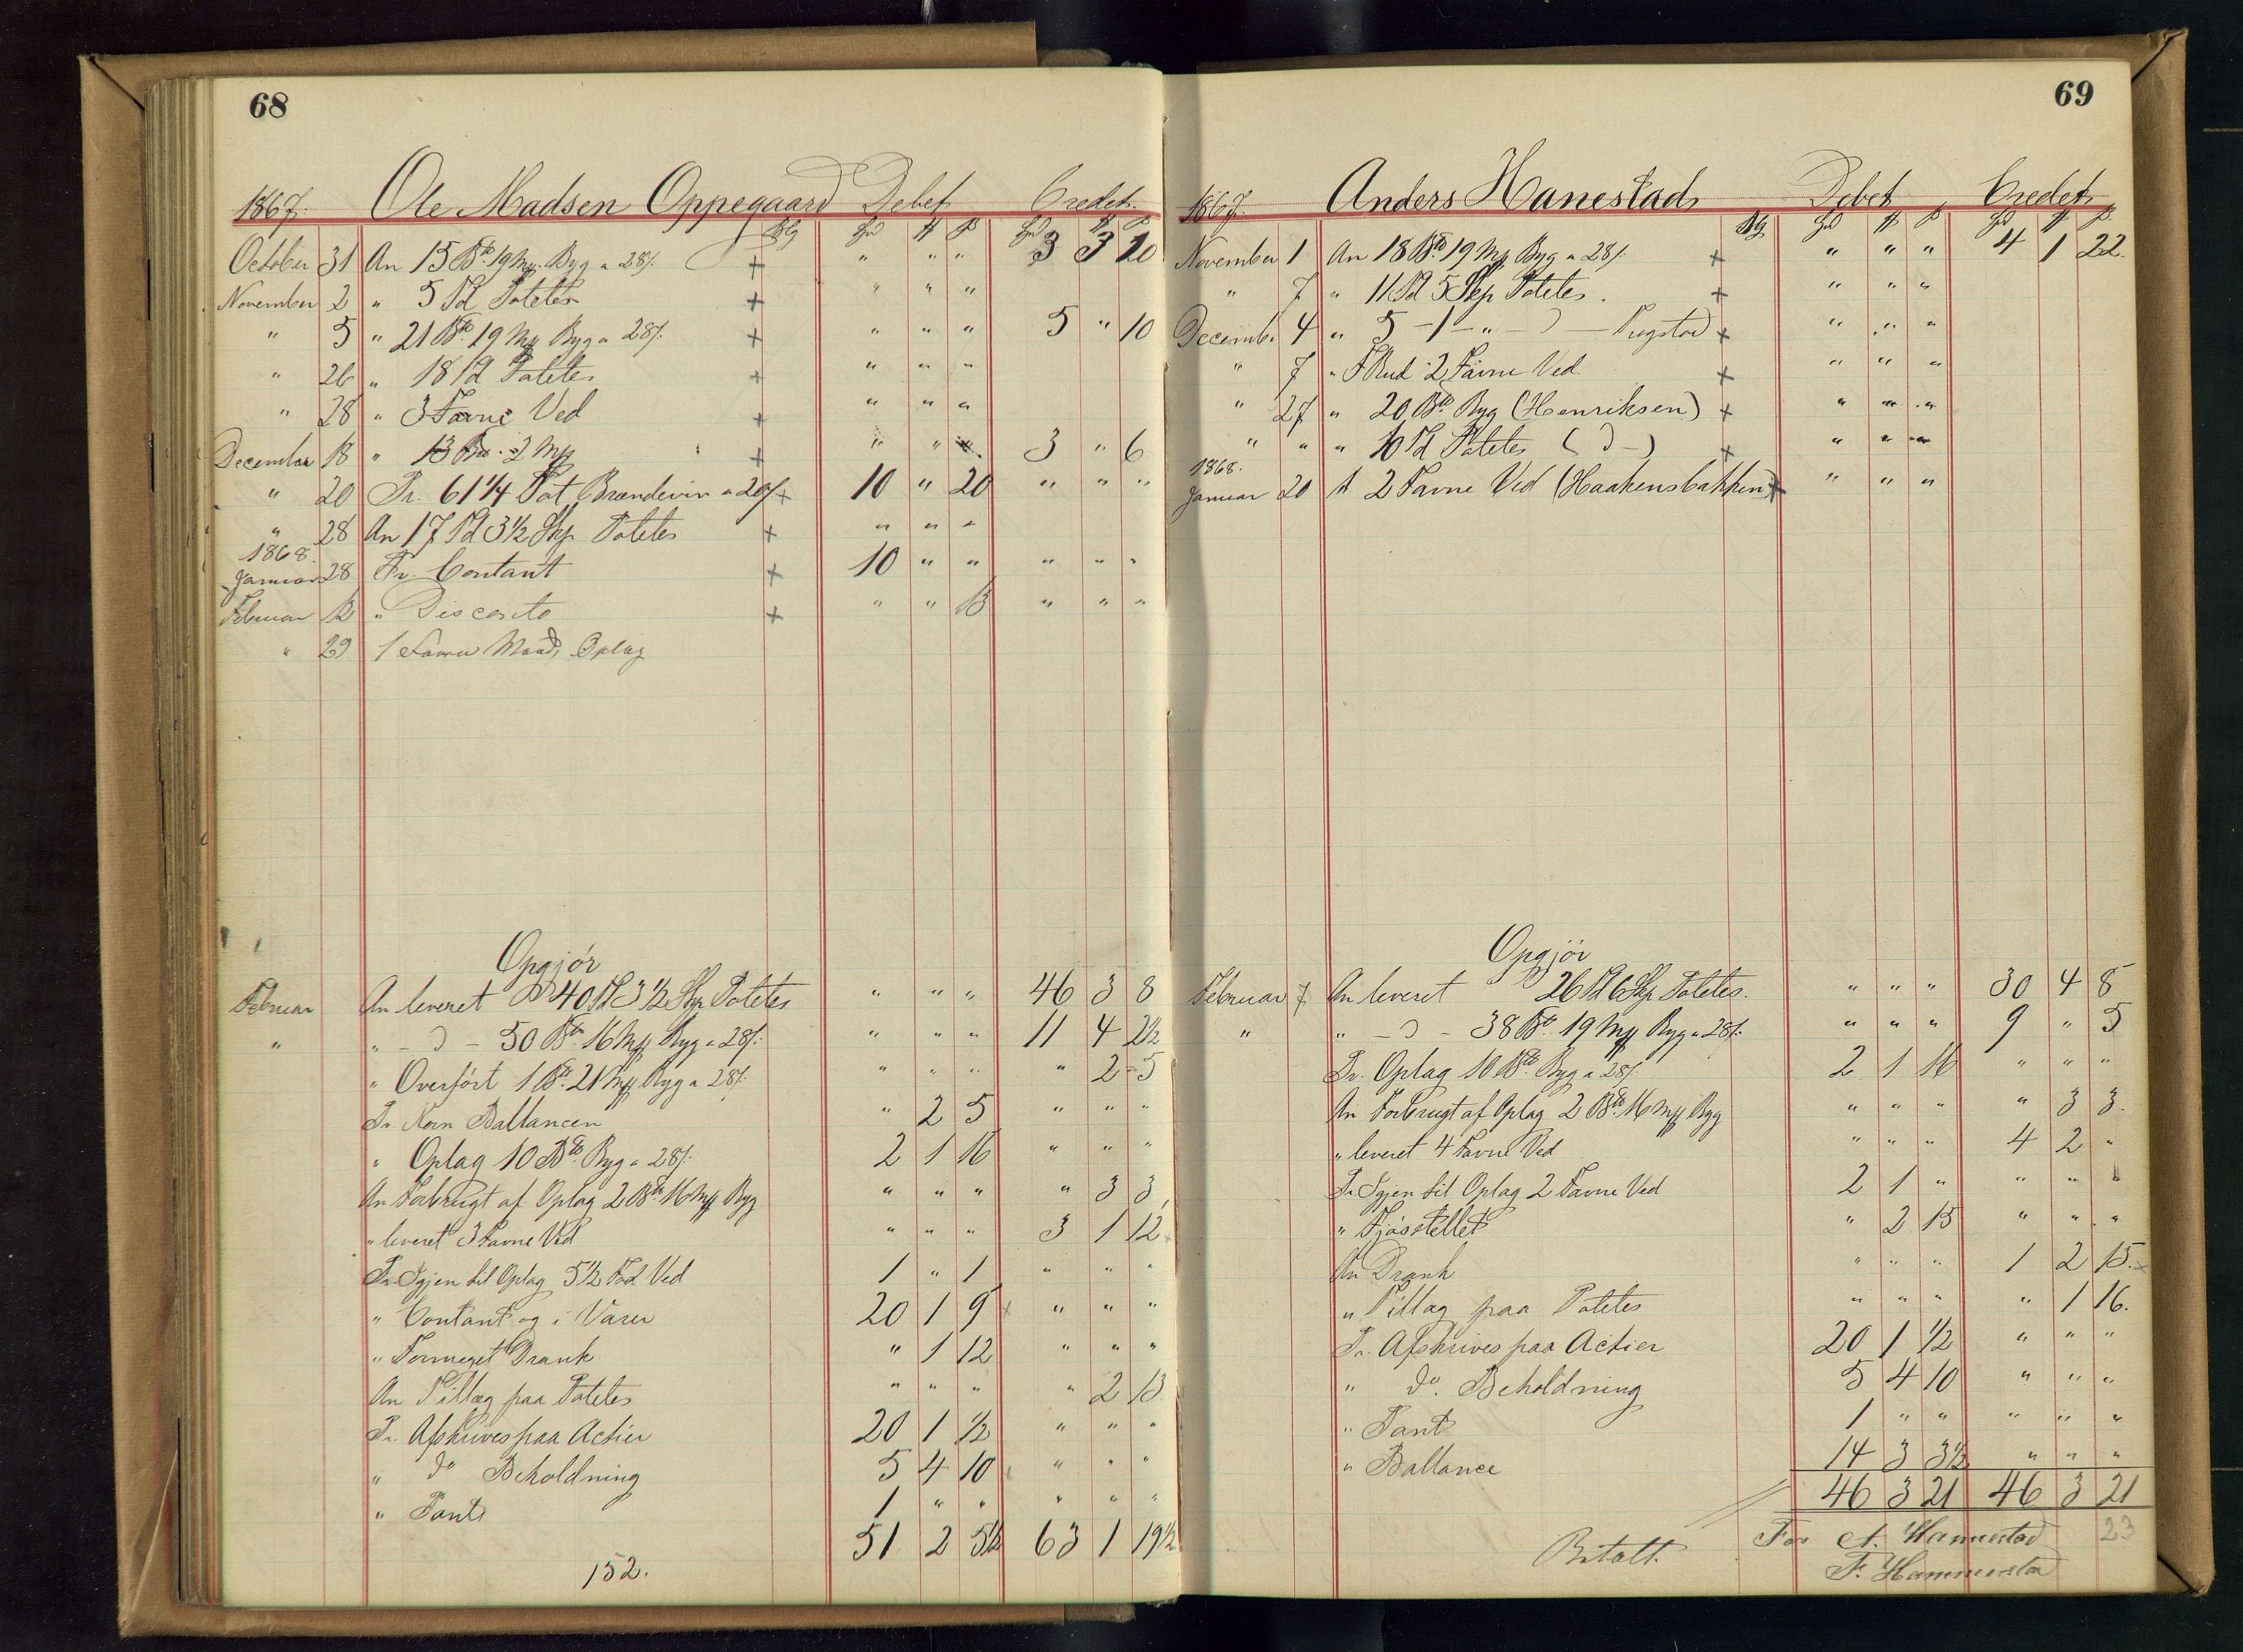 68
1867. Ole Madsen Oppegaard Debet Credet.
October 31 An 15 Btr. 19 Mk. Byg a 28/. + " " " 3 3 20
November 2 " 5 Td Potetes + " " "
" 5 " 21 Btr. 19 Mk Byg a 28/. + " " " 5 " 10
" 26 " 18 Td Potetes + " " "
" 28 " 3 Favne Ved + " " "
December 18 " 13 Btr. 2 Mk + " " " 3 " 6
" 20 Pr. 61 1/4 Pot Brændeviin a 20/ + 10 " 20 " " "
" 28 An 17 Td 3 1/2 Skp Potetes + " " "
1868.
Januar 28 Pr. Contant + 10 " " " " "
Februar 12 " Disconto + " " 13 " " "
" 29 1 Favn Oplag
Opgjør
Februar An leveret 40 Td 3 1/2 Skp Potetes " " " 46 3 8
" " - D - 50 Btr 16 Mk Byg a 28/. " " " 11 4 2 1/2
" Overført 1 Bt. 21 Mk Byg a 28/. " " " " 2 5
Pr. Korn Ballancen " 2 5 " " "
" Oplag 10 Btr. Byg a 28/. 2 1 16 " " "
An Forbrugt af Oplag 2 Btr 16 Mk Byg " " " " 3 3
" leveret 3 Favne Ved " " " 3 1 12
Pr. Igjen til Oplag 5 1/2 Fod Ved 1 " 1 " " "
" Contant og i Varer 20 1 9 " " "
" Formeget Drank " 1 12 " " "
An Tillæg paa Potetes " " " " 2 13
Pr. Afskrives paa Actier 20 1 1/2 " " "
" Do Beholdning 5 4 10 " " "
" Pant 1 " " " " "
51 2 5 1/2 63 1 19 1/2
152.
69
1867. Anders Hanestad Debet Credet
November 1 An 18 Btr. 19 Mk Byg a 28/. + " " " 4 1 22.
" 7 " 11 Td 5 Skp Potetes. + " " "
December 4 " 5 - 1 - " - D - Progstad + " " "
" 7 " F Rud 2 Favne Ved + " " "
" 27 " 20 Btr Byg (Henriksen) + " " "
" " " 10 Td Potetes ( D - ) + " " "
1868.
Januar 20 A 2 Favne Ved (Haakensbakken) + " " "
Opgjör
Februar 7 An leveret 26 Td 6 Skp Potetes. " " " 30 4 8
" " - D - 38 Btr. 19 Mk Byg a 28/. " " " 9 " 5
Pr. Oplag 10 Btr. Byg a 28/. 2 1 16 " " "
An Forbrugt af Oplag 2 Btr. 16 Mk Byg " " " " 3 3.
" leveret 4 Favne Ved " " " 4 2 "
Pr. Igjen til Oplag 2 Favne Ved 2 1 " " " "
" Fjøsstellet " 2 15 " " "
An Drank " " " 1 2 15.
" Tillæg paa Potetes " " " " 1 16.
Pr. Afskrives paa Actier 20 1 1/2 " " "
" Do. Beholdning 5 4 10 " " "
" Pant 1 " " " " "
" Ballance 14 3 3 1/2 " " "
46 3 21 46 3 21
Betalt. For A. Hannestad 23
F. Hannestad